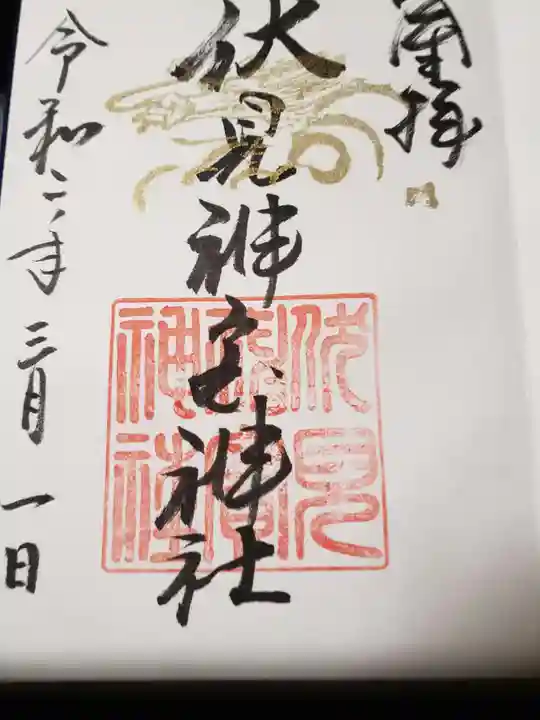 奉拝
伏見神宝神社
伏見神寳神社
令和二年三月一日